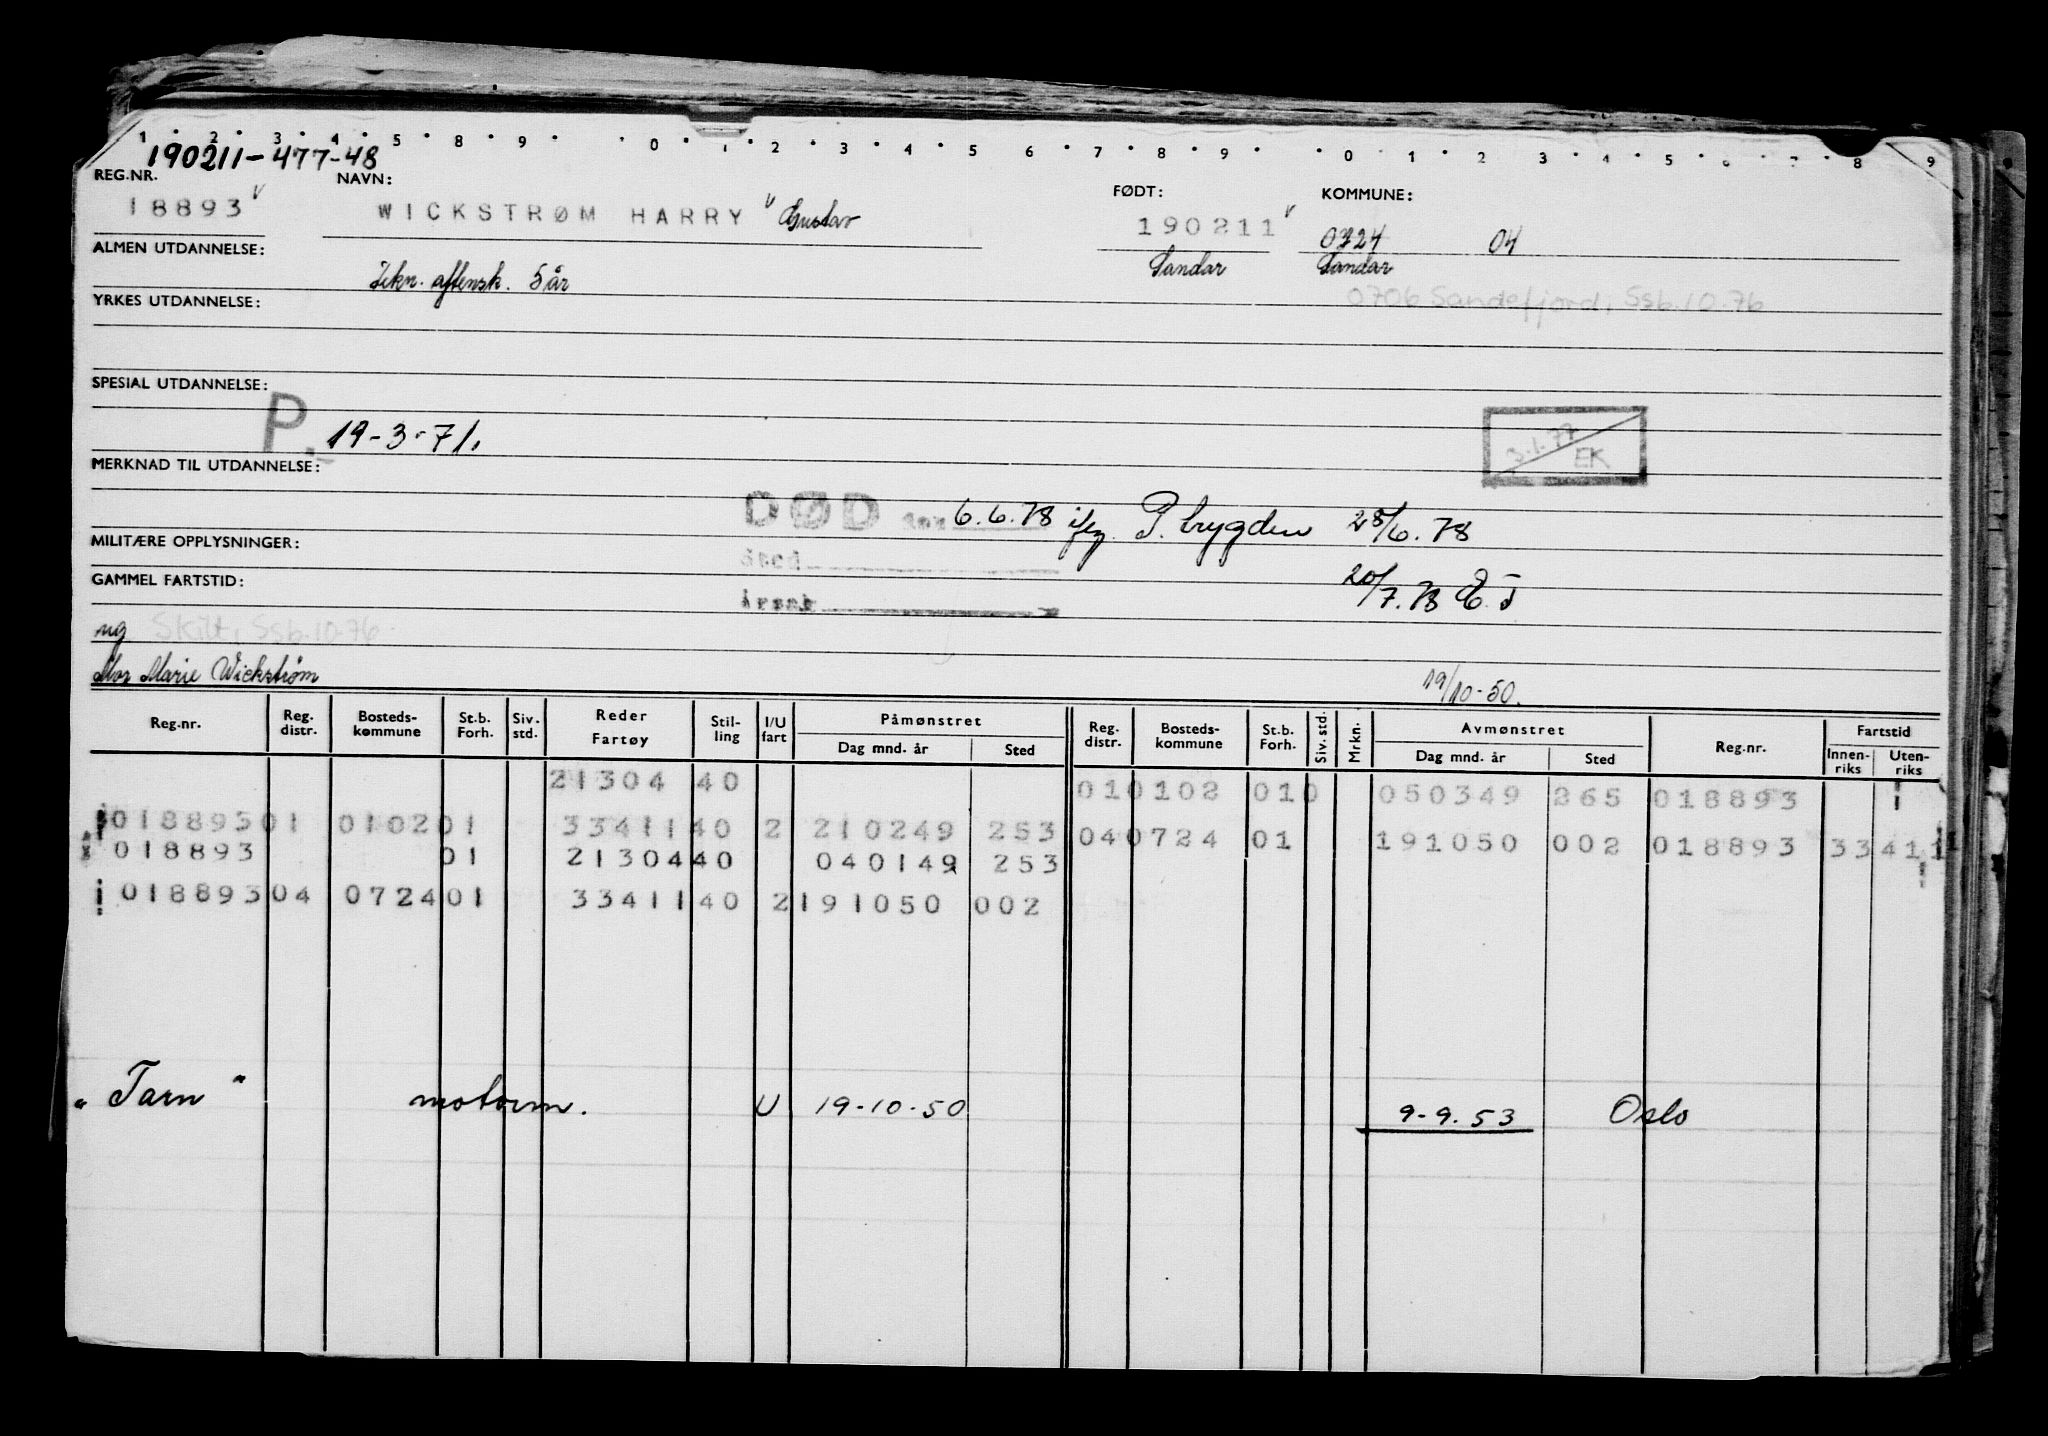 1 2 3 4 5 8 9 0 1 2 3 4 5 6 7 8 9 0 1 2 3 4 5 6 7 8 9
190211-477-48
REG.NR. NAVN: FØDT: KOMMUNE:
18893 WICKSTRØM HARRY Gustav 190211 0724 04
ALMEN UTDANNELSE: Tekn. aftensk. 5 år Sandar Sandar
YRKES UTDANNELSE: 0706 Sandefjord, Ssb.10.76
SPESIAL UTDANNELSE:
P. 19-3-71. 3.1.77 EK
MERKNAD TIL UTDANNELSE:
DØD den 6.6.78 iflg. P. trygden 28/6.78
MILITÆRE OPPLYSNINGER: Sted
GAMMEL FARTSTID: Årsak 20/7.78 E.J
ug Skilt, Ssb.10.76
Mor Marie Wickstrøm 19/10-50.
Reg.nr. Reg. distr. Bosteds-kommune St.b. Forh. Siv. std. Reder Fartøy Stil-ling I/U fart Påmønstret Dag mnd. år Sted Reg. distr. Bosteds-kommune St.b. Forh. Siv. std. Mrkn. Avmønstret Dag mnd. år Sted Reg.nr. Fartstid Innen-riks Uten-riks
21304 40 01 0102 010 050349 265 018893
018893 01 0102 01 33411 40 2 210249 253 04 0724 01 191050 002 018893 33411
018893 01 21304 40 040149 253
018893 04 0724 01 33411 40 2 191050 002
"Tarn" motorm. U 19-10-50 9-9.53 Oslo